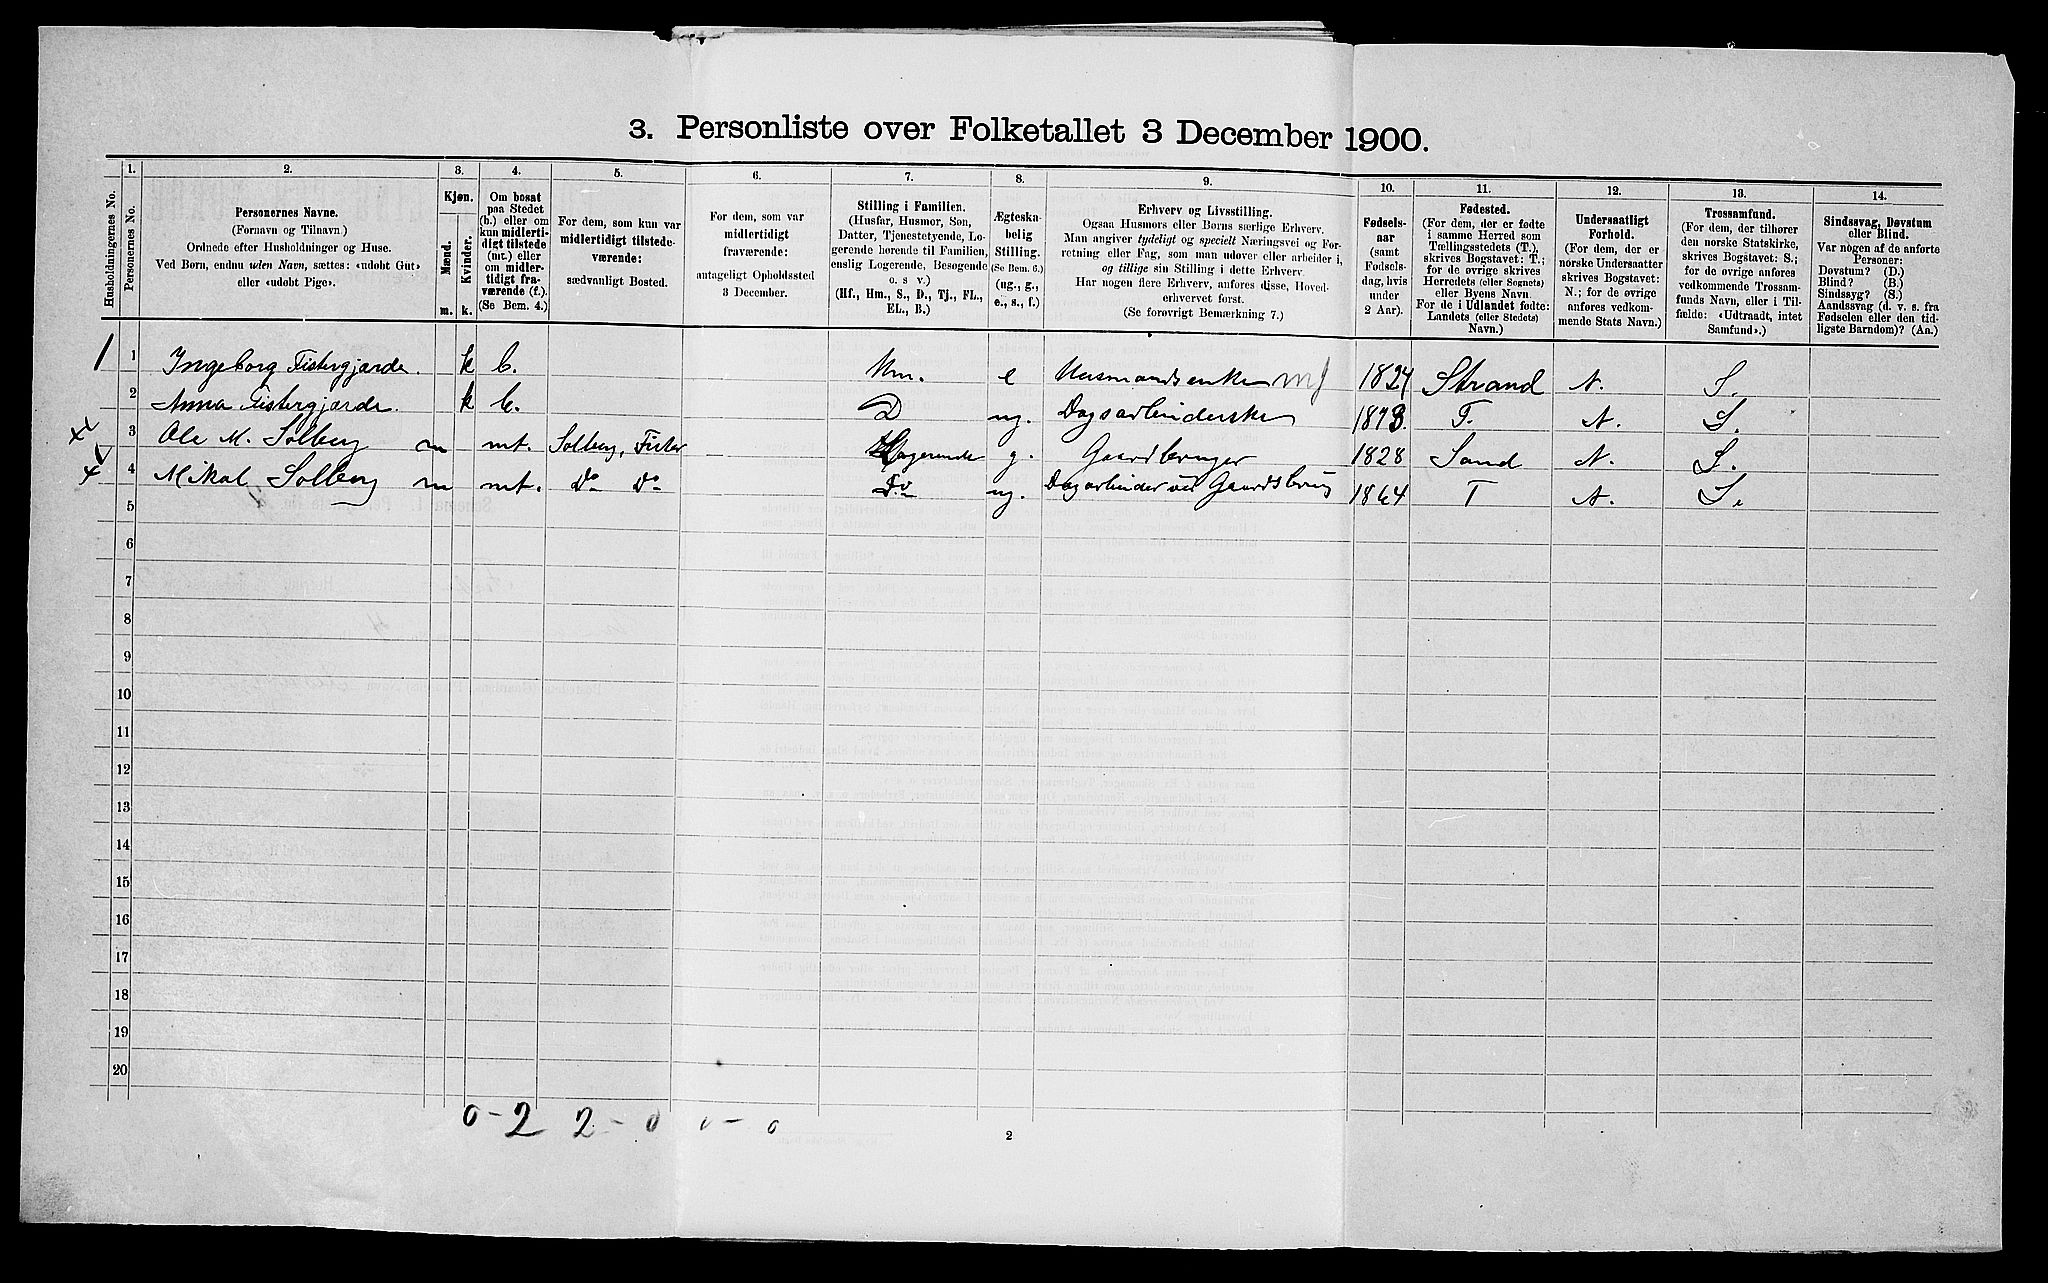 3. Personliste over Folketallet 3 December 1900.
1. 2. 3. 4. 5. 6. 7. 8. 9. 10. 11. 12. 13. 14.
Husholdningernes No.
Personernes No.
Personernes Navne.
(Fornavn og Tilnavn.)
Ordnede efter Husholdninger og Huse.
Ved Børn, endnu uden Navn, sættes: «udøbt Gut»
eller «udøbt Pige».
Kjøn.
Mænd. Kvinder.
m. k.
Om bosat
paa Stedet
(b.) eller om
kun midlerti-
digt tilstede
(mt.) eller
om midler-
tidigt fra-
værende (f.).
(Se Bem. 4.)
For dem, som kun var
midlertidigt tilstede-
værende:
sædvanligt Bosted.
For dem, som var
midlertidigt
fraværende:
antageligt Opholdssted
3 December.
Stilling i Familien.
(Husfar, Husmor, Søn,
Datter, Tjenestetyende, Lo-
gerende hørende til Familien,
enslig Logerende, Besøgende
o. s v.)
(Hf., Hm., S., D., Tj., FL.,
EL., B.)
Ægteska-
belig
Stilling.
(Se Bem. 6.)
(ug., g.,
e., s., f.)
Erhverv og Livsstilling.
Ogsaa Husmors eller Børns særlige Erhverv.
Man angiver tydeligt og specielt Næringsvei og For-
retning eller Fag, som man udøver eller arbeider i,
og tillige sin Stilling i dette Erhverv.
Har nogen flere Erhverv, anføres disse, Hoved-
erhvervet først.
(Se forøvrigt Bemærkning 7.)
Fødsels-
aar
(samt
Fødsels-
dag, hvis
under
2 Aar).
Fødested.
(For dem, der er fødte
i samme Herred som
Tællingsstedets (T.),
skrives Bogstavet: T.;
for de øvrige skrives
Herredets (eller Sognets)
eller Byens Navn.
For de i Udlandet fødte:
Landets (eller Stedets)
Navn.)
Undersaatligt
Forhold.
(For dem, der er
norske Undersaatter
skrives Bogstavet:
N.; for de øvrige
anføres vedkom-
mende Stats Navn.)
Trossamfund.
(For dem, der tilhører
den norske Statskirke,
skrives Bogstavet: S.;
for de øvrige anføres
vedkommende Trossam-
funds Navn, eller i Til-
fælde: «Udtraadt, intet
Samfund».)
Sindssvag, Døvstum
eller Blind.
Var nogen af de anførte
Personer:
Døvstum? (D.)
Blind? (B.)
Sindssyg? (S.)
Aandssvag (d. v. s. fra
Fødselen eller den tid-
ligste Barndom)? (Aa.)
1 1 Ingeborg Fistergjærde. k b. Hm. e Husmandsenke 1824 Strand N. S.
2 Anna Fistergjærde. k b. D ug. Dagsarbeiderske 1873. T. N. S.
3 Ole M. Solberg m mt. Solberg, Fister Logerende g. Gaardbruger 1828 Sand N. S.
4 Mikal Solberg m mt. Do Do Do ug. Dagarbeider ved Gaardsbrug 1864 T N. S.
5
6
7
8
9
10
11
12
13
14
15
16
17
18
19
20
0 - 2 2 - 0 0 - 0
2